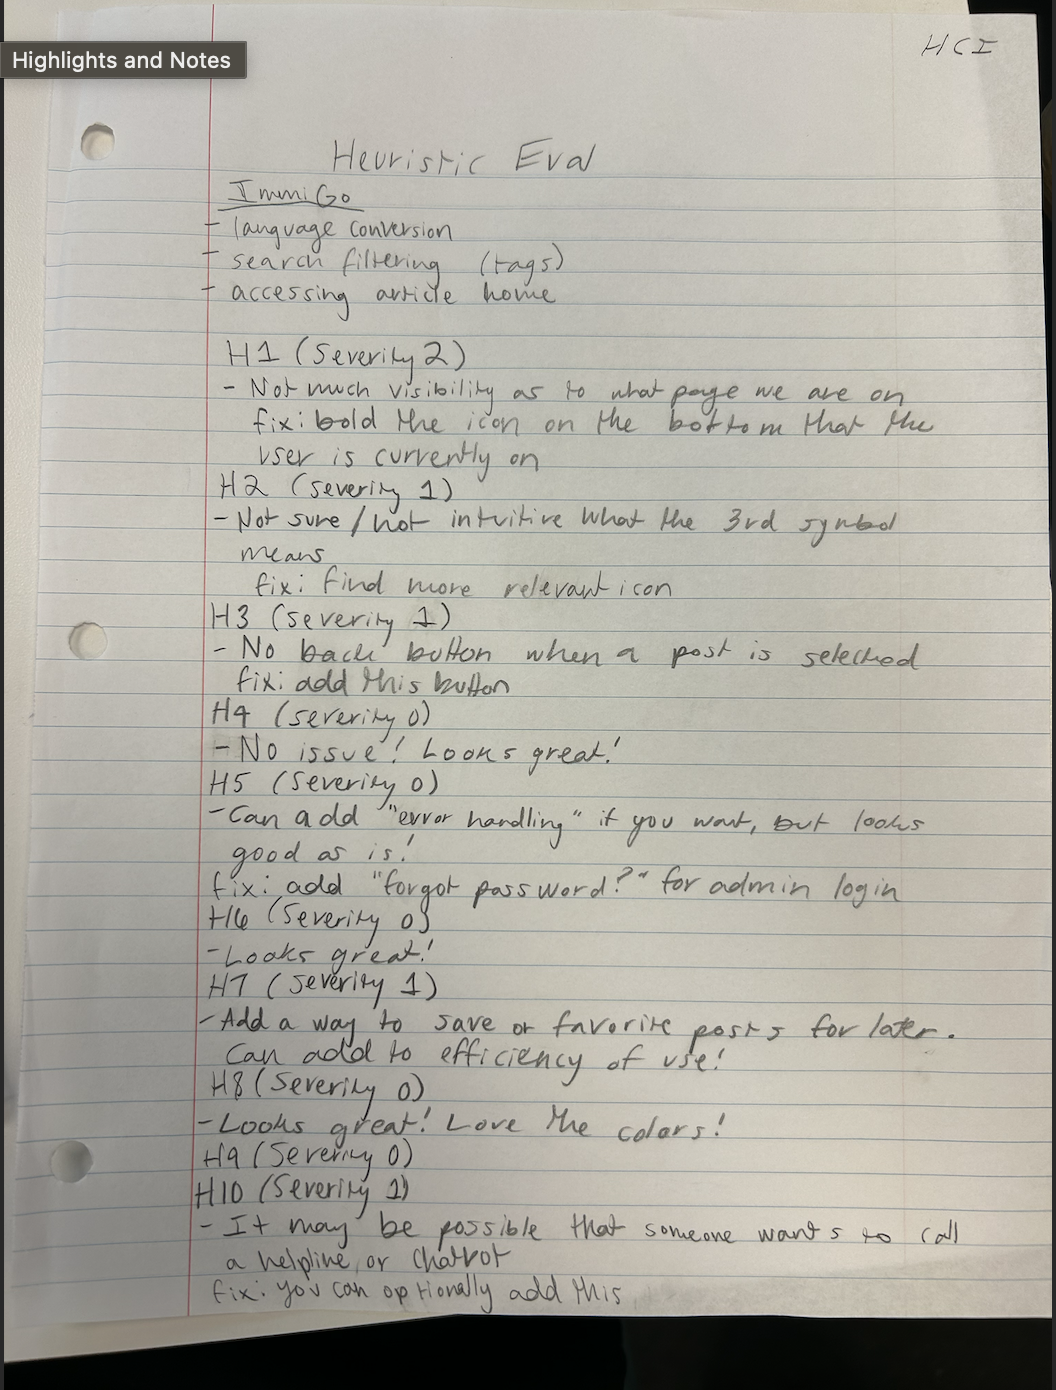 Highlights and Notes
HCI
Heuristic Eval
ImmiGo
- language conversion
- search filtering (tags)
- accessing article home
H1 (Severity 2)
- Not much visibility as to what page we are on
fix: bold the icon on the bottom that the
user is currently on
H2 (severity 1)
- Not sure/not intuitive what the 3rd symbol
means
fix: find more relevant icon
H3 (severity 1)
- No back button when a post is selected
fix: add this button
H4 (severity 0)
- No issue! Looks great!
H5 (Severity 0)
- Can add "error handling" if you want, but looks
good as is!
fix: add "forgot password?" for admin login
H6 (Severity 0)
- Looks great!
H7 (severity 1)
- Add a way to save or favorite posts for later.
Can add to efficiency of use!
H8 (Severity 0)
- Looks great! Love the colors!
H9 (Severity 0)
H10 (Severity 1)
- It may be possible that someone wants to call
a helpline or chatbot
fix: you can optionally add this